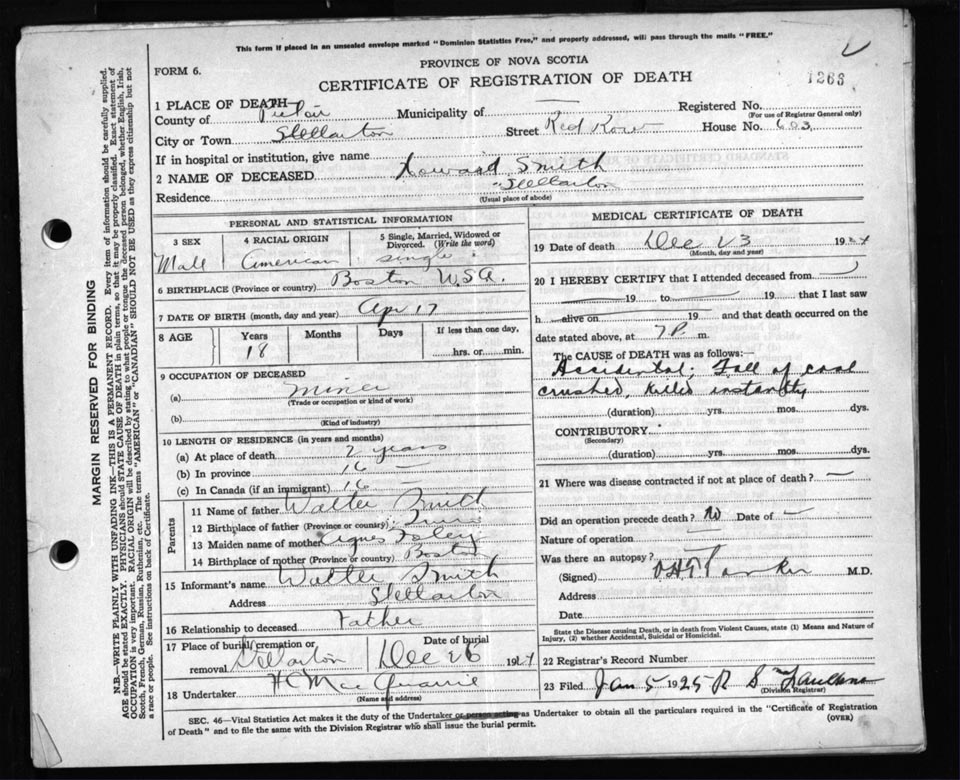 This form if placed in an unsealed envelope marked "Dominion Statistics Free," and properly addressed, will pass through the mails "FREE."
PROVINCE OF NOVA SCOTIA
FORM 6.
CERTIFICATE OF REGISTRATION OF DEATH
1263
1 PLACE OF DEATH—
County of Pictou Municipality of — Registered No.
(For use of Registrar General only)
City or Town Stellarton Street Red Row House No. 603
If in hospital or institution, give name
2 NAME OF DECEASED Howard Smith
Residence Stellarton
(Usual place of abode)
PERSONAL AND STATISTICAL INFORMATION
3 SEX 4 RACIAL ORIGIN 5 Single, Married, Widowed or Divorced. (Write the word)
Male American single
6 BIRTHPLACE (Province or country) Boston U.S.A.
7 DATE OF BIRTH (month, day and year) Apr 17
8 AGE Years Months Days If less than one day,
18 hrs. or min.
9 OCCUPATION OF DECEASED
(a) Miner
(Trade or occupation or kind of work)
(b)
(Kind of industry)
10 LENGTH OF RESIDENCE (in years and months)
(a) At place of death 2 years
(b) In province 16 —
(c) In Canada (if an immigrant) 16 —
Parents
11 Name of father Walter Smith
12 Birthplace of father (Province or country)
13 Maiden name of mother Agnes Foley
14 Birthplace of mother (Province or country) Boston
15 Informant's name Walter Smith
Address Stellarton
16 Relationship to deceased Father
17 Place of burial, cremation or removal Stellarton Date of burial Dec 26 1924
18 Undertaker H C MacQuarrie
(Name and address)
MEDICAL CERTIFICATE OF DEATH
19 Date of death Dec 23 1924
(Month, day and year)
20 I HEREBY CERTIFY that I attended deceased from
19 to 19 that I last saw
h alive on 19 and that death occurred on the
date stated above, at 7 P. m.
The CAUSE OF DEATH was as follows:—
Accidental; Fall of coal
crushed, killed instantly
(duration) yrs. mos. dys.
CONTRIBUTORY
(Secondary)
(duration) yrs. mos. dys.
21 Where was disease contracted if not at place of death? —
Did an operation precede death? No Date of —
Nature of operation —
Was there an autopsy? —
(Signed) M.D.
Address
Date
State the Disease causing Death, or in death from Violent Causes, state (1) Means and Nature of
Injury, (2) whether Accidental, Suicidal or Homicidal.
22 Registrar's Record Number
23 Filed Jan 5 1925 R S
(Division Registrar)
SEC. 46—Vital Statistics Act makes it the duty of the Undertaker or person acting as Undertaker to obtain all the particulars required in the "Certificate of Registration
of Death" and to file the same with the Division Registrar who shall issue the burial permit. (OVER)
MARGIN RESERVED FOR BINDING
N.B.—WRITE PLAINLY WITH UNFADING INK—THIS IS A PERMANENT RECORD. Every item of information should be carefully supplied.
AGE should be stated EXACTLY. PHYSICIANS should STATE CAUSE OF DEATH in plain terms, so that it may be properly classified. Exact statement of
OCCUPATION is very important. RACIAL ORIGIN will be described by stating to what people or tongue the deceased person belonged, whether English, Irish,
Scotch, French, German, Russian, Ruthenian, etc. The terms "AMERICAN" or "CANADIAN" SHOULD NOT BE USED as they express citizenship but not
a race or people. See instructions on back of Certificate.